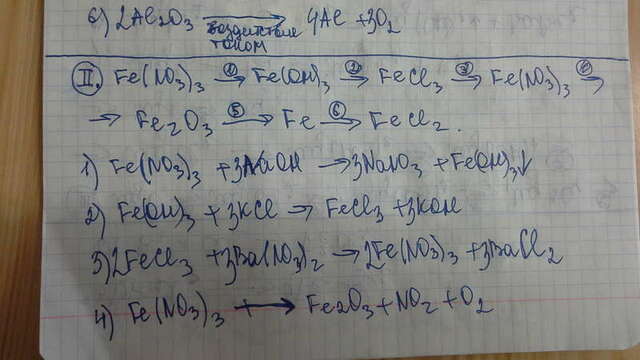 6) 2Al₂O₃ воздействие током → 4Al + 3O₂
II. Fe(NO₃)₃ →① Fe(OH)₃ →② FeCl₃ →③ Fe(NO₃)₃ →④
→ Fe₂O₃ →⑤ Fe →⑥ FeCl₂.
1) Fe(NO₃)₃ + 3NaOH → 3NaNO₃ + Fe(OH)₃↓
2) Fe(OH)₃ + 3KCl → FeCl₃ + 3KOH
3) 2FeCl₃ + 3Ba(NO₃)₂ → 2Fe(NO₃)₃ + 3BaCl₂
4) Fe(NO₃)₃ → Fe₂O₃ + NO₂ + O₂